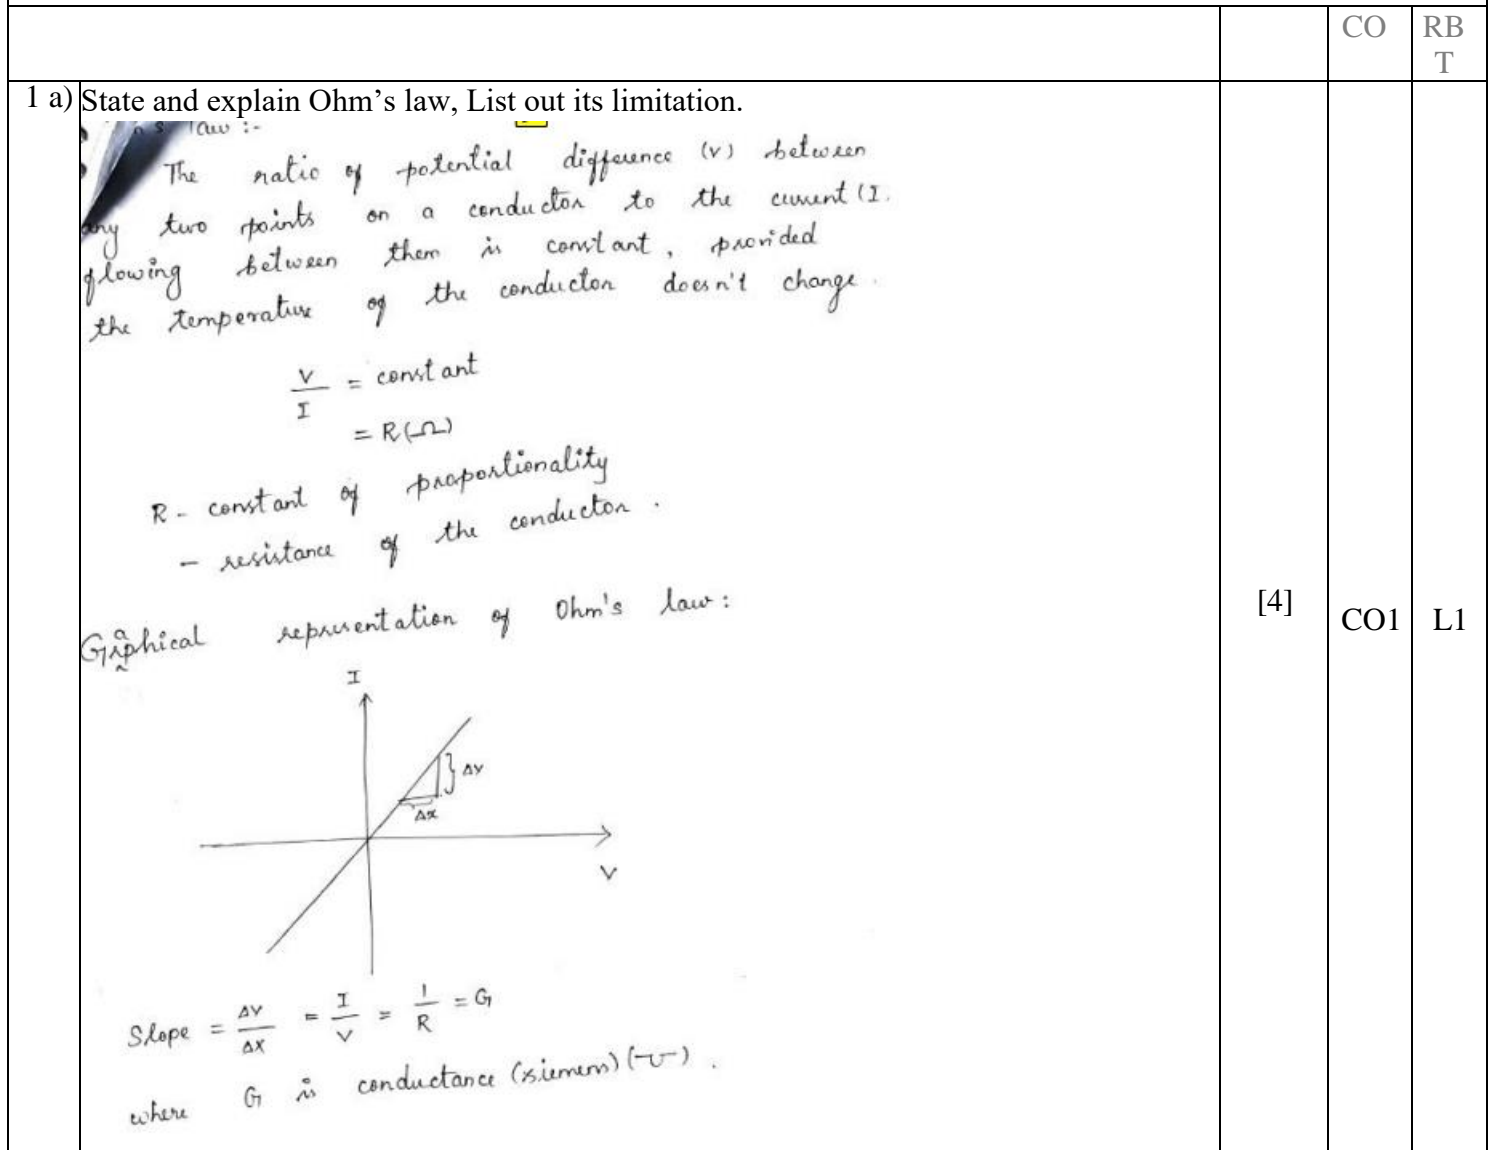 CO RB
T
1 a) State and explain Ohm's law, List out its limitation.
law :-
The ratio of potential difference (V) between
any two points on a conductor to the current (I.
flowing between them is constant, provided
the temperature of the conductor doesn't change.
V/I = constant
= R(Ω)
R - constant of proportionality
- resistance of the conductor.
Graphical representation of Ohm's law:
[4]
CO1 L1
I
ΔY
Δx
V
Slope = ΔY/ΔX = I/V = 1/R = G
where G is conductance (siemens) (℧).